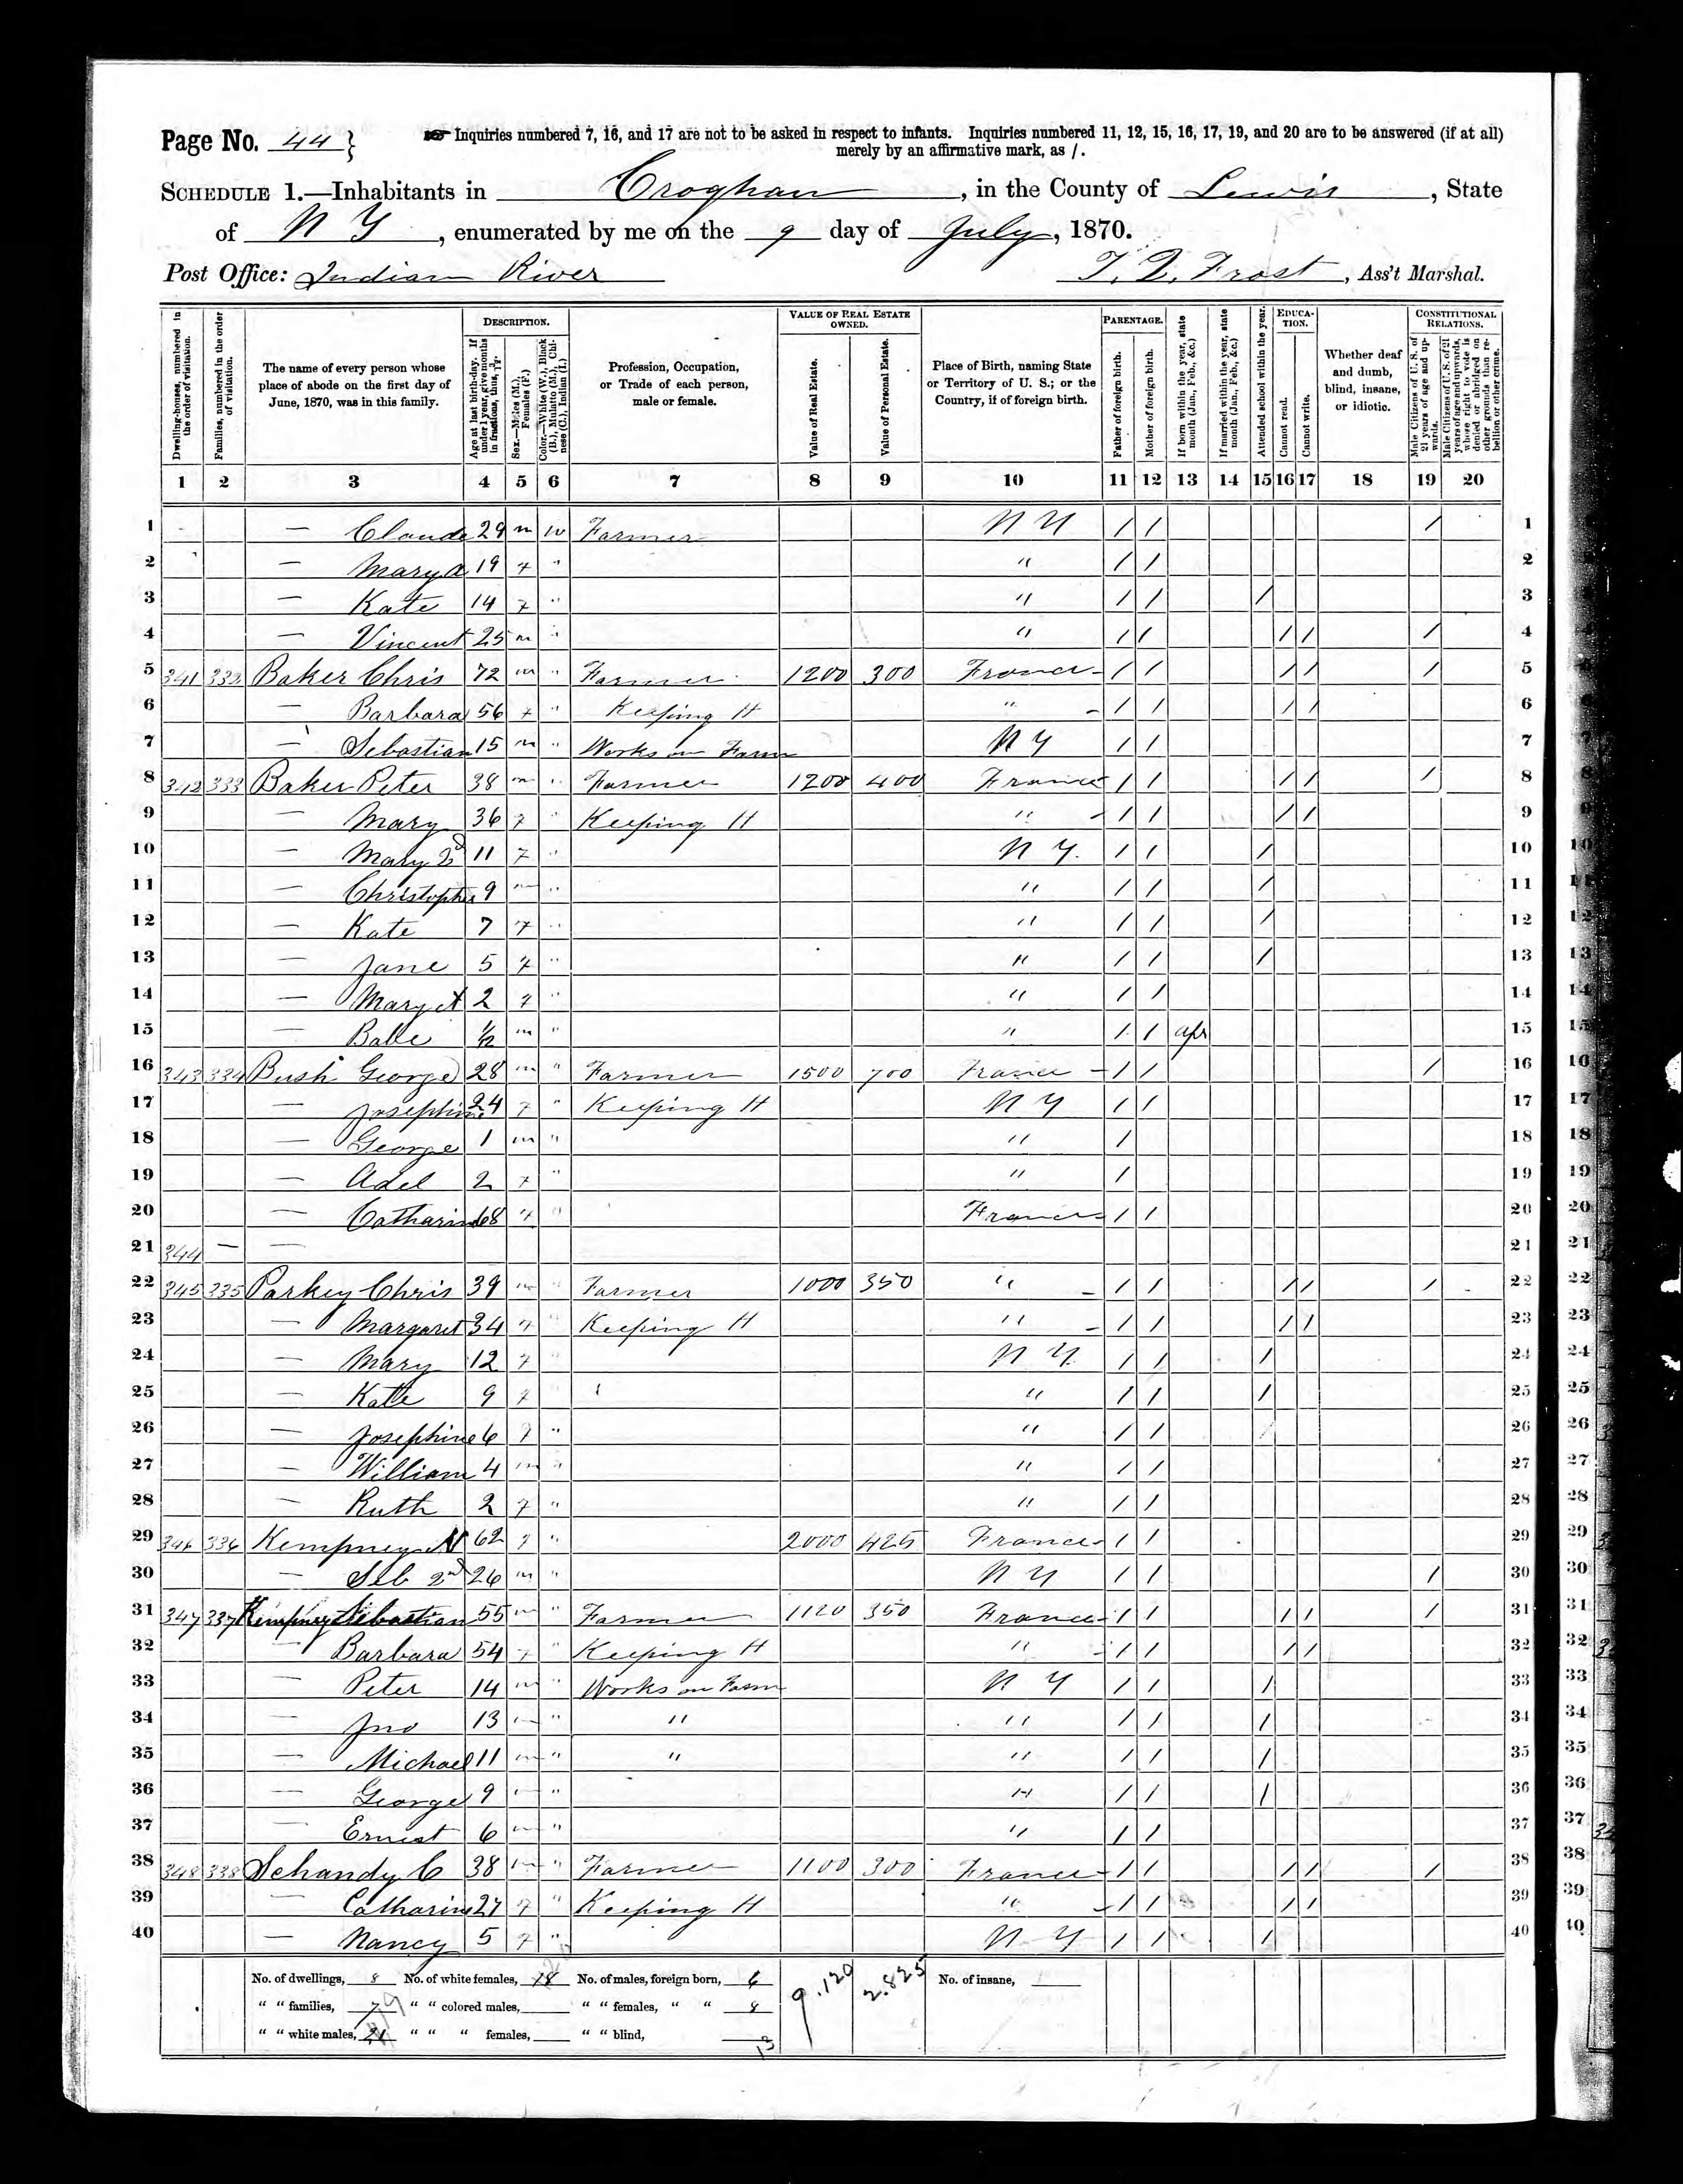 Page No. 44 }
Inquiries numbered 7, 16, and 17 are not to be asked in respect to infants. Inquiries numbered 11, 12, 15, 16, 17, 19, and 20 are to be answered (if at all)
merely by an affirmative mark, as /.
SCHEDULE 1.—Inhabitants in Croghan, in the County of Lewis, State
of N Y, enumerated by me on the 9 day of July, 1870.
Post Office: Indian River T. D. Frost, Ass't Marshal.
Dwelling-houses, numbered in the order of visitation.
Families, numbered in the order of visitation.
The name of every person whose place of abode on the first day of June, 1870, was in this family.
DESCRIPTION.
Age at last birth-day. If under 1 year, give months in fractions, thus, 3/12.
Sex.—Males (M.), Females (F.)
Color.—White (W.), Black (B.), Mulatto (M.), Chinese (C.), Indian (I.)
Profession, Occupation, or Trade of each person, male or female.
VALUE OF REAL ESTATE OWNED.
Value of Real Estate.
Value of Personal Estate.
Place of Birth, naming State or Territory of U. S.; or the Country, if of foreign birth.
PARENTAGE.
Father of foreign birth.
Mother of foreign birth.
If born within the year, state month (Jan., Feb., &c.)
If married within the year, state month (Jan., Feb., &c.)
Attended school within the year.
EDUCATION.
Cannot read.
Cannot write.
Whether deaf and dumb, blind, insane, or idiotic.
CONSTITUTIONAL RELATIONS.
Male Citizens of U. S. of 21 years of age and upwards.
Male Citizens of U. S. of 21 years of age and upwards, whose right to vote is denied or abridged on other grounds than rebellion or other crime.
1 2 3 4 5 6 7 8 9 10 11 12 13 14 15 16 17 18 19 20
1 — Claude 29 m w Farmer N Y / / / 1
2 — Mary A 19 f " " / / 2
3 — Kate 14 f " " / / / 3
4 — Vincent 25 m " " / / / / / 4
5 341 332 Baker Chris 72 m " Farmer 1200 300 France / / / / / 5
6 — Barbara 56 f " Keeping H " / / / / 6
7 — Sebastian 15 m " Works on Farm N Y / / 7
8 342 333 Baker Peter 38 m " Farmer 1200 400 France / / / / / 8
9 — Mary 36 f " Keeping H " / / / / 9
10 — Mary 2d 11 f " N Y. / / / 10
11 — Christopher 9 m " " / / / 11
12 — Kate 7 f " " / / / 12
13 — Jane 5 f " " / / / 13
14 — Mary A 2 f " " / / 14
15 — Babe m " " / / apr 15
16 343 334 Bush George 28 m " Farmer 1500 700 France / / / 16
17 — Josephine 24 f " Keeping H N Y / / 17
18 — George 1 m " " / 18
19 — Adel 2 f " " / 19
20 — Catharine 68 f " France / / 20
21 344 — — 21
22 345 335 Parkey Chris 39 m " Farmer 1000 350 " / / / / / 22
23 — Margaret 34 f " Keeping H " / / / / 23
24 — Mary 12 f " N Y. / / / 24
25 — Kate 9 f " " / / / 25
26 — Josephine 6 f " " / / / 26
27 — William 4 m " " / / 27
28 — Ruth 2 f " " / / 28
29 346 336 Kempney N 62 f " 2000 425 France / / 29
30 — Seb 2nd 26 m " N Y / / / 30
31 347 337 Kempney Sebastian 55 m " Farmer 1120 350 France / / / / / 31
32 — Barbara 54 f " Keeping H " / / / / 32
33 — Peter 14 m " Works on Farm N Y / / / 33
34 — Jno 13 m " " " / / / 34
35 — Michael 11 m " " " / / / 35
36 — George 9 m " " / / / 36
37 — Ernest 6 m " " / / 37
38 348 338 Schandy C 38 m " Farmer 1100 300 France / / / / / 38
39 — Catharine 27 f " Keeping H " / / / / 39
40 — Nancy 5 f " N Y / / / 40
No. of dwellings, 8 No. of white females, 18 No. of males, foreign born, 6 9.120 2.825 No. of insane,
" " families, 7 " " colored males, " " females, " " 8
" " white males, 21 " " " females, " " blind,
13